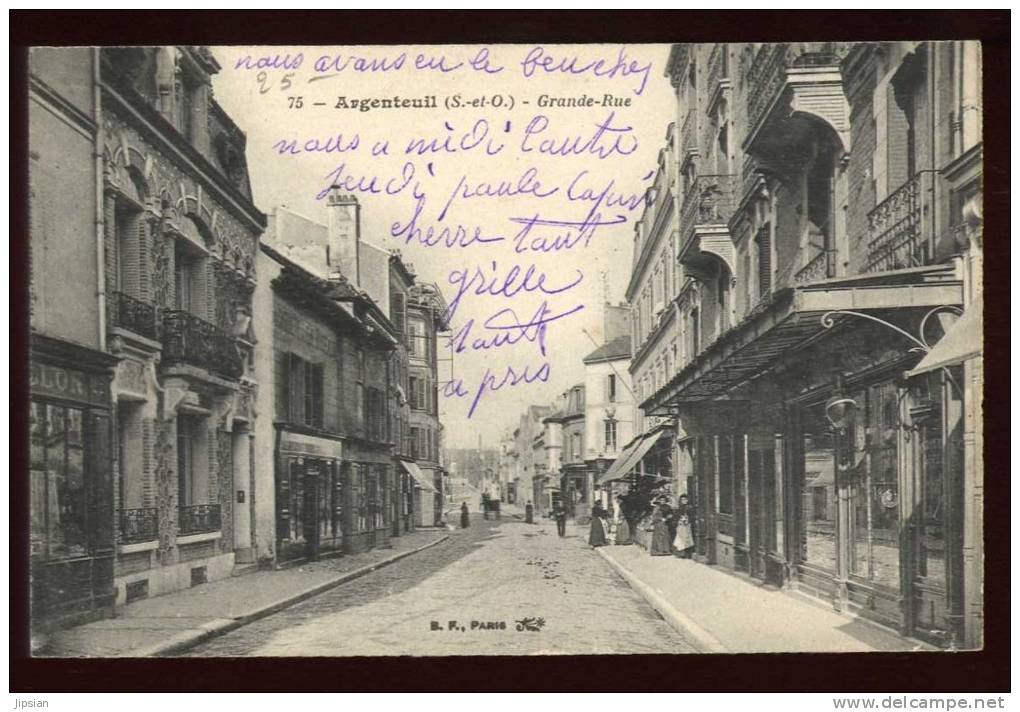 nous avans eu le
25
75 - Argenteuil (S.-et-O.) - Grande-Rue
nous a midi lautre
jeudi paule
cherre tant
grille
tant
a pris
LLON
B. F., PARIS
jipsian
www.delcampe.net